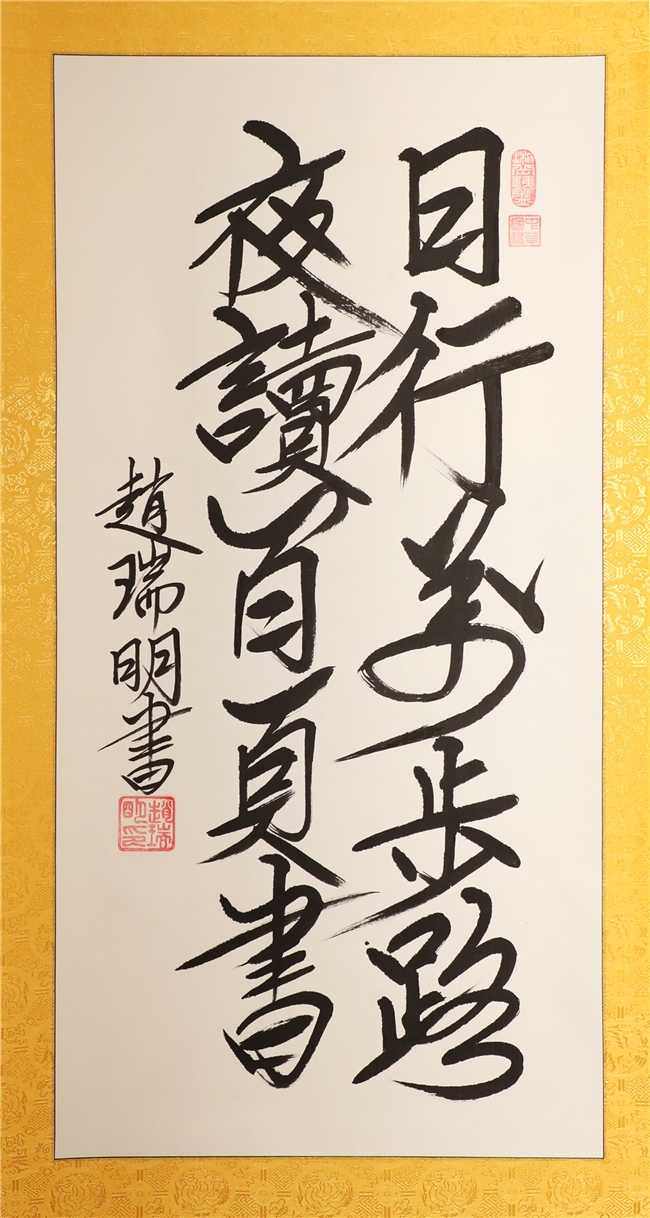 日行萬步路
夜讀百頁書
趙瑞明書
趙瑞明印